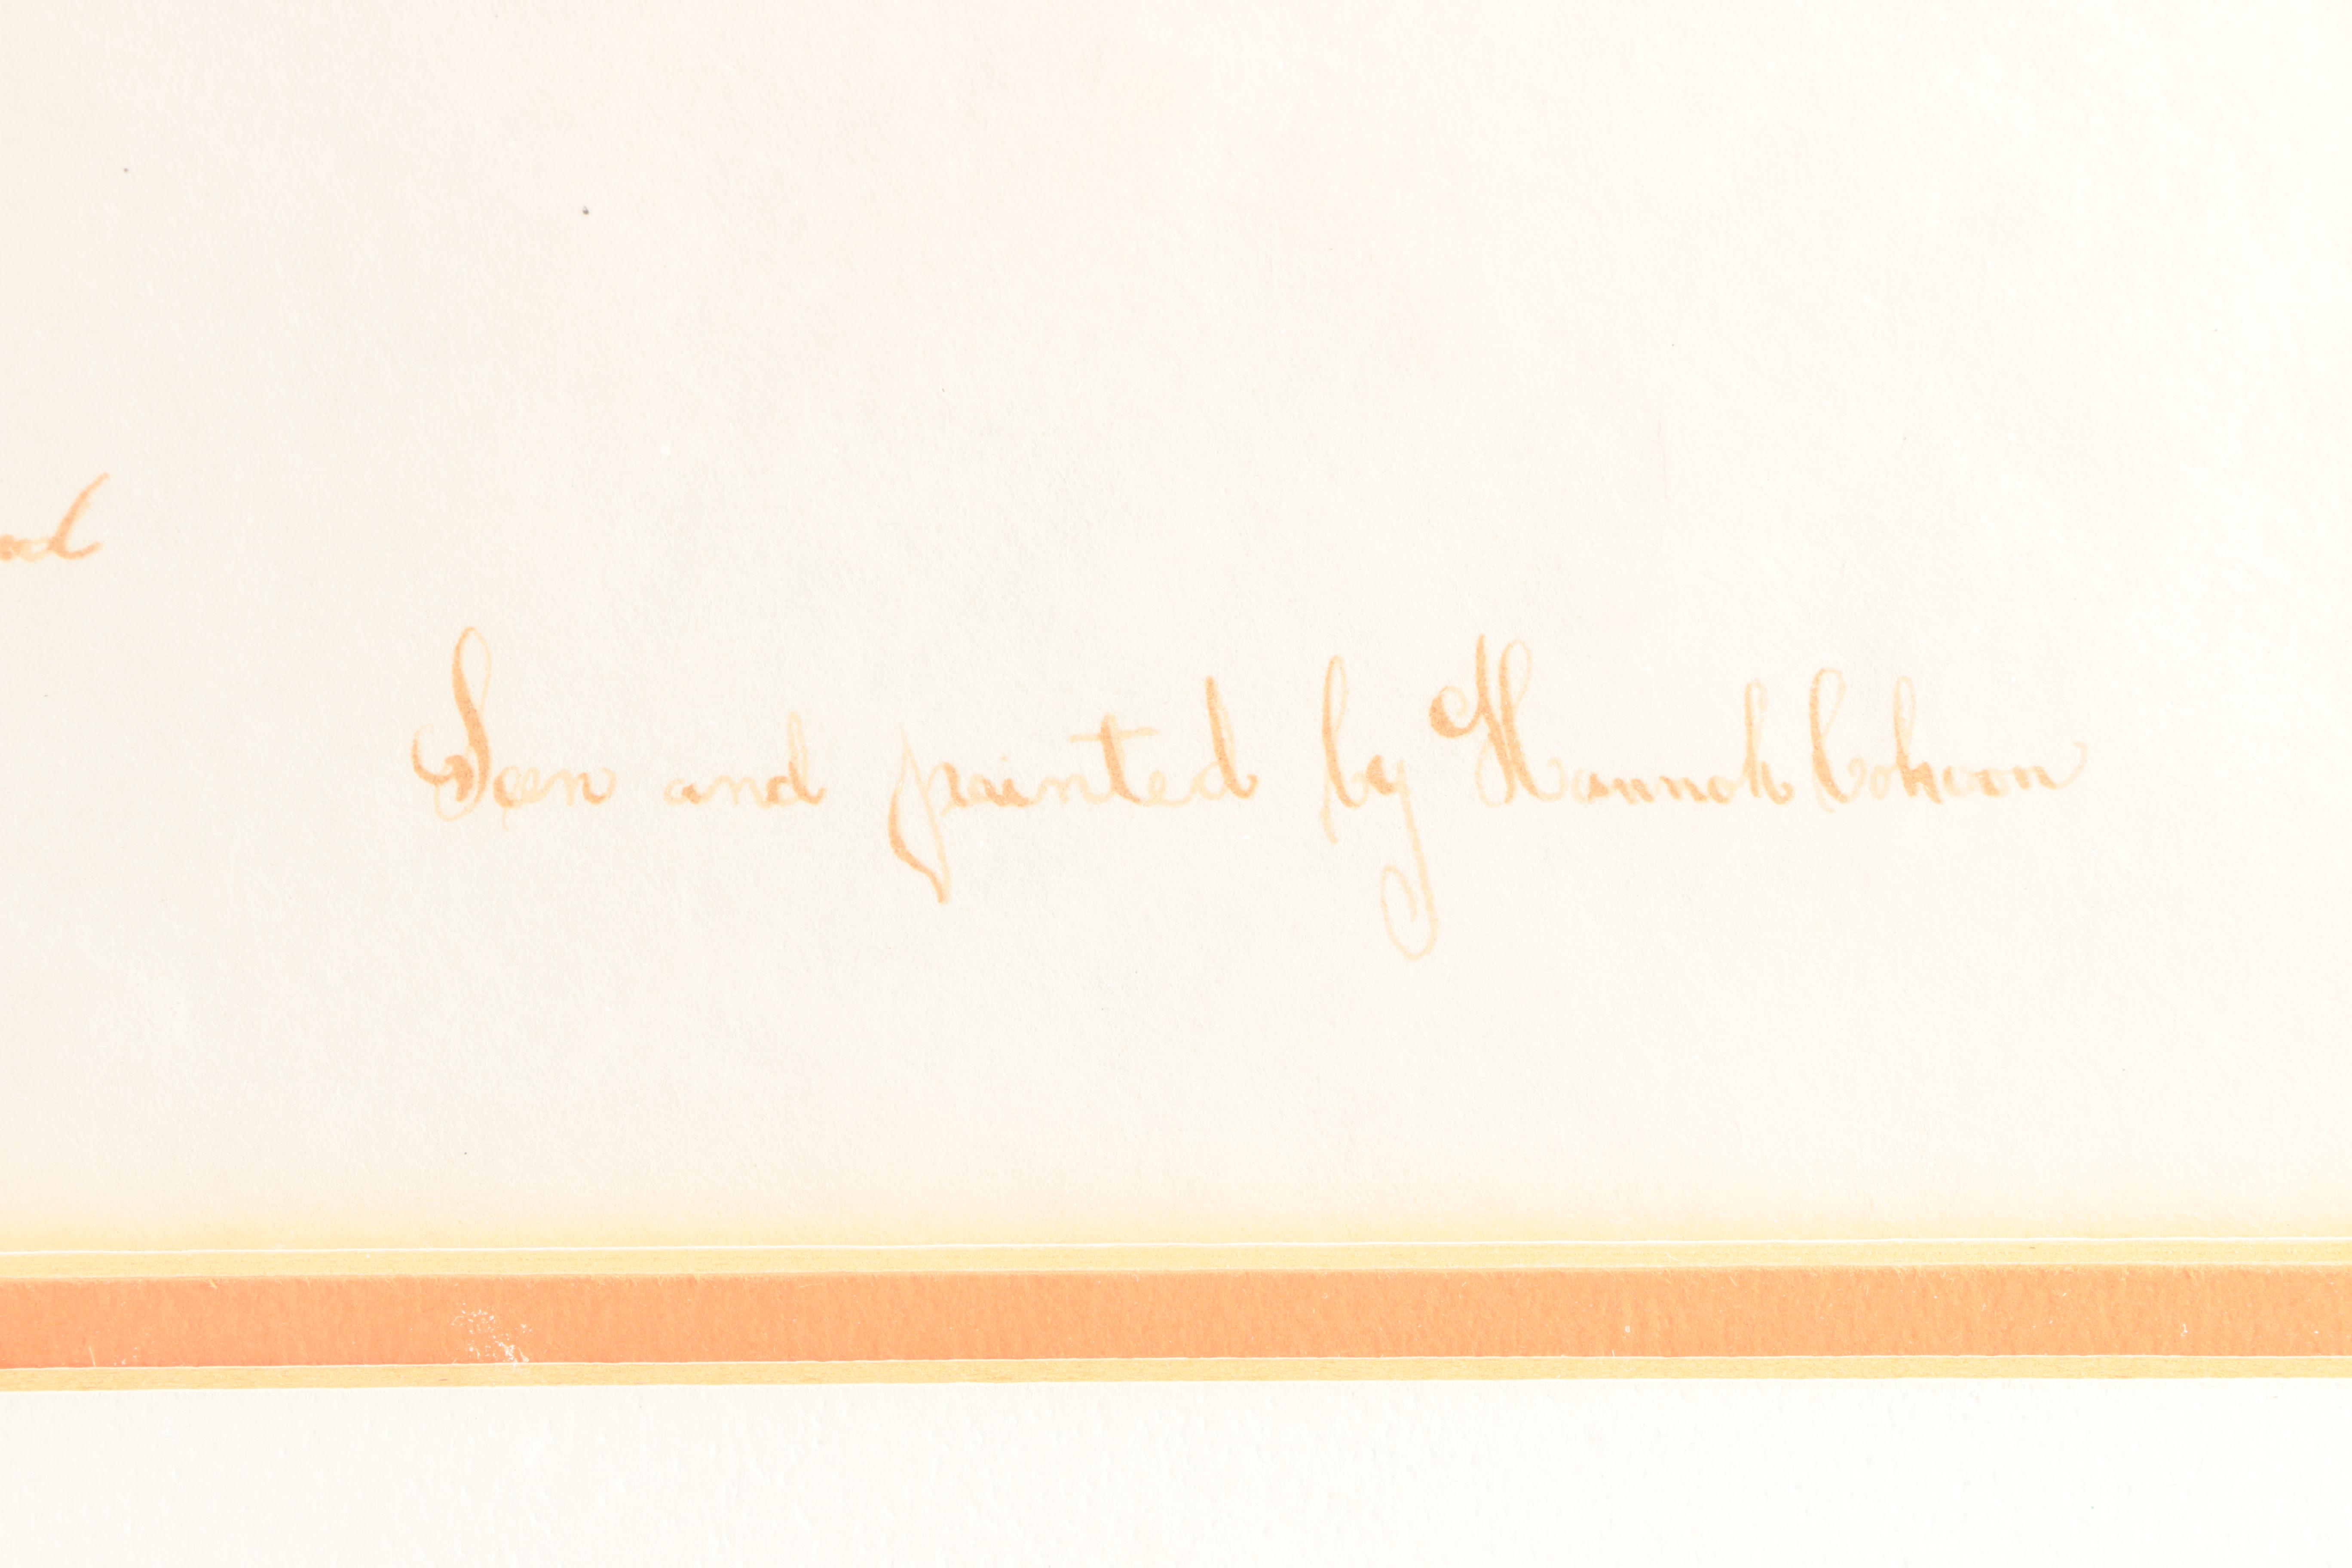 Seen and painted by Hannah Cohoon